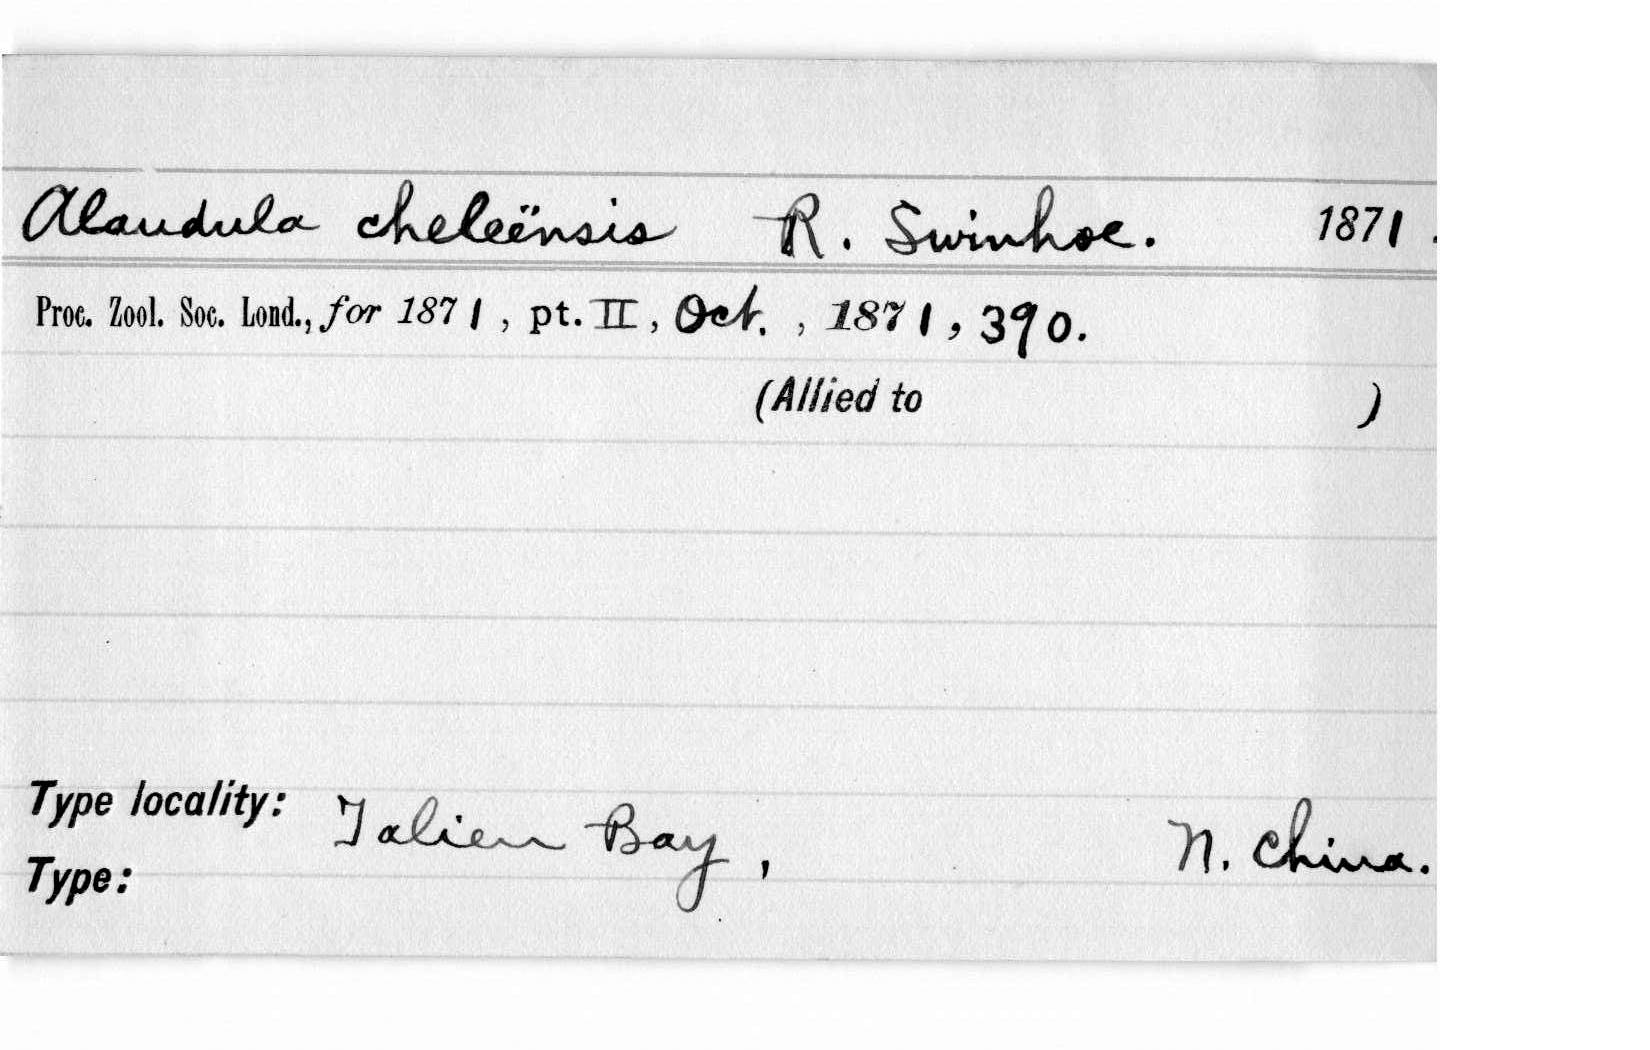 Alaudula cheleënsis R. Swinhoe. 1871.
Proc. Zool. Soc. Lond., for 1871, pt. II, Oct., 1871, 390.
(Allied to )
Type locality: Talien Bay, N. China.
Type: